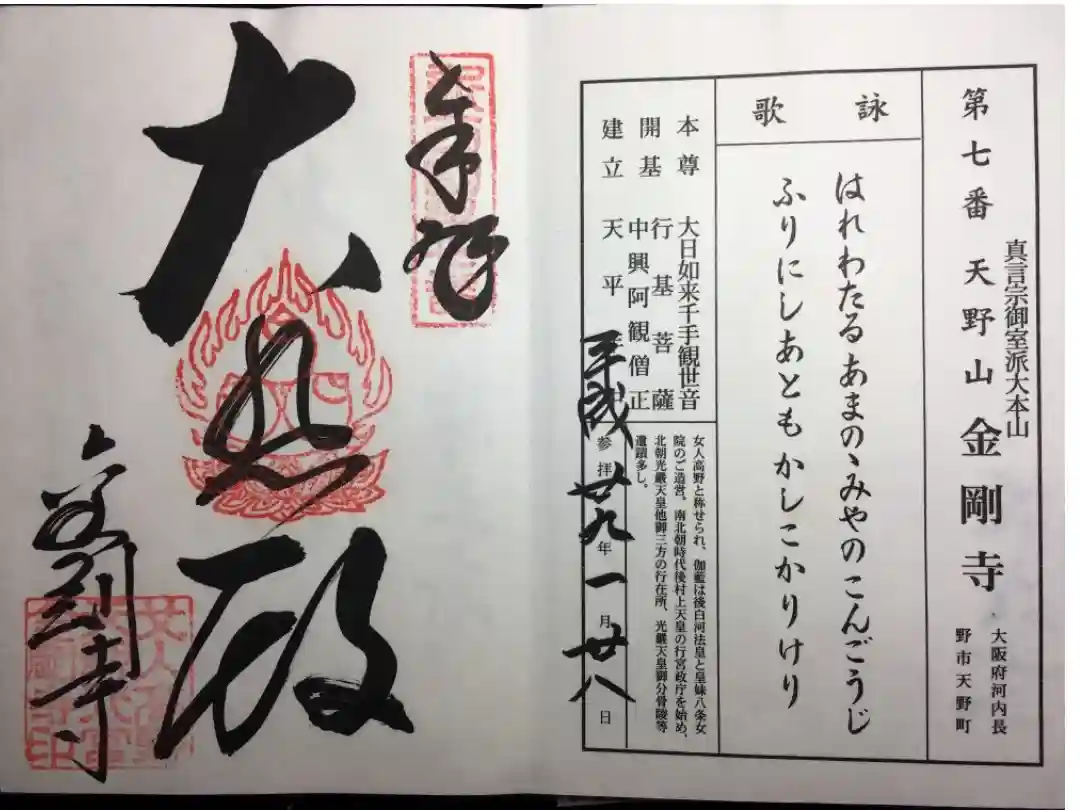 真言宗御室派大本山
第七番 天野山 金剛寺
大阪府河内長
野市天野町
詠歌
はれわたるあまのゝみやのこんごうじ
ふりにしあともかしこかりけり
本尊 大日如来千手観世音
開基 行基菩薩
中興阿観僧正
建立 天平
女人高野と称せられ、伽藍は後白河法皇と皇妹八条女
院のご造営。南北朝時代後村上天皇の行宮政庁を始め、
北朝光厳天皇他御三方の行在所、光厳天皇御分骨陵等
遺蹟多し。
参拝 平成廿九年一月廿八日
奉拝
大悲殿
金剛寺